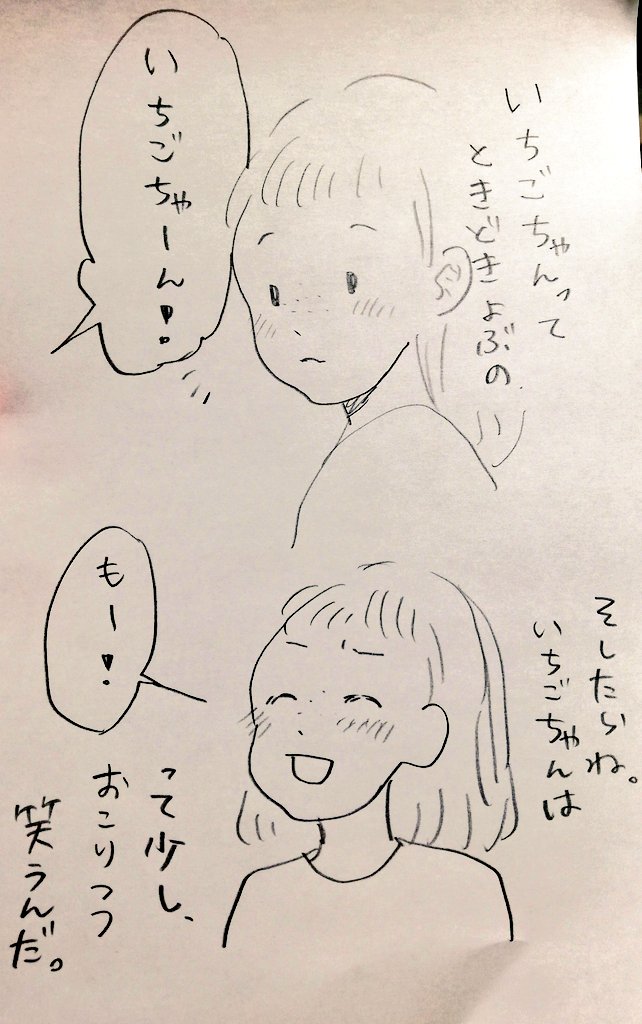 いちごちゃんって
ときどきよぶの
いちごちゃーん!
そしたらね。
いちごちゃんは
もー!
って少し、
おこりつつ
笑うんだ。